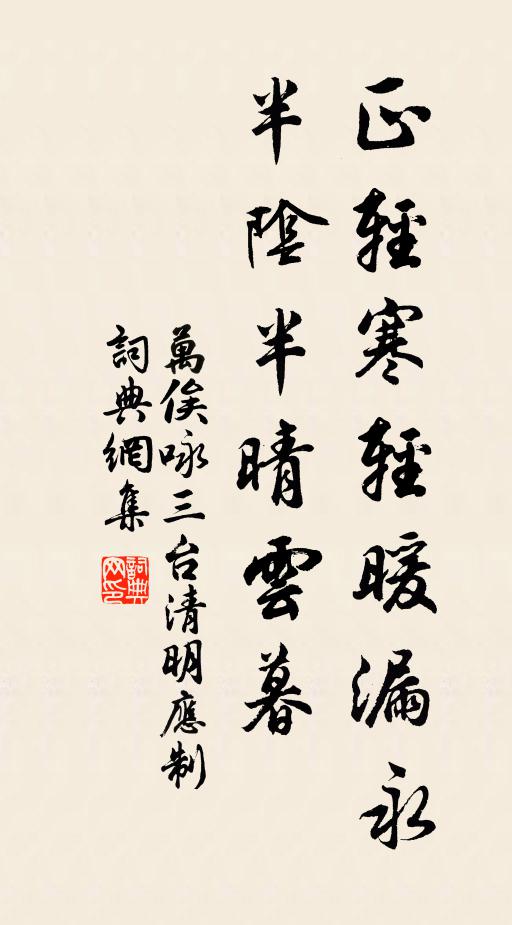 正輕寒輕暖漏永
半陰半晴雲暮
萬俟咏三台清明應制
詞典網集
詞典网印